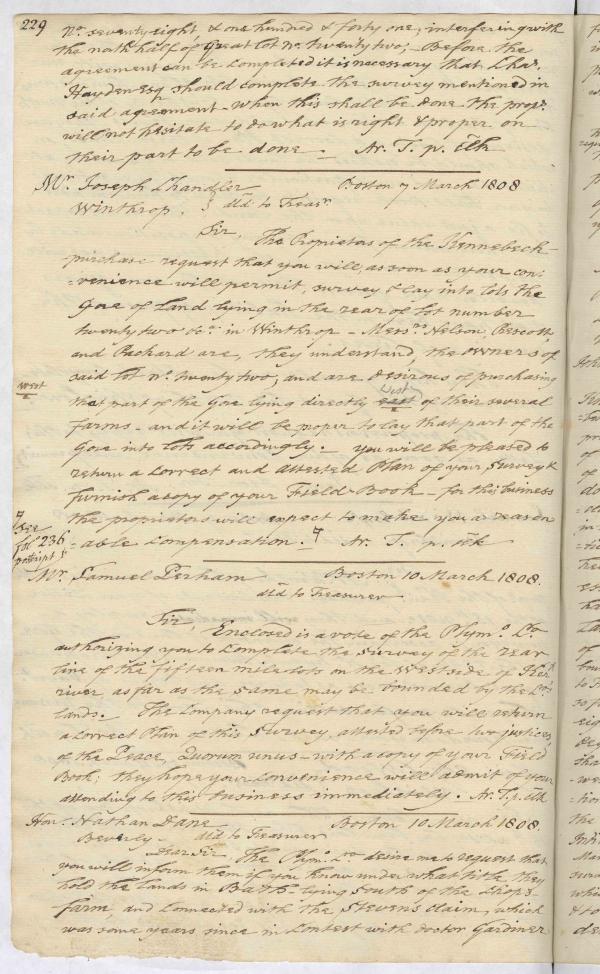 229
No. seventy eight, & one hundred & forty one, interfering with
the north half of Great lot no. twenty two; Before the
agreement can be completed it is necessary that Chas.
Hayden Esqr should complete the survey mentioned in
said agreement - When this shall be done the propr.
will not hesitate to do what is right & proper on
their part to be done. Ar. T. p. Clk
Mr. Joseph Chandler Boston 7 March 1808
Winthrop. } dld to Treasr
Sir, The Proprietors of the Kennebeck
purchase request that you will, as soon as your con:
=venience will permit, survey & lay into lots the
Gore of Land lying in the rear of lot number
twenty two &c. in Winthrop - Messrs Nelson, Prescott,
and Packard are, they understand, the owners of
said lot no. twenty two; and are desirous of purchasing
West
that part of the Gore lying directly east of their several
West
farms - and it will be proper to lay that part of the
Gore into lots accordingly. - you will be pleased to
return a correct and attested Plan of your Survey &
furnish a copy of your Field-Book - for this business
the proprietors will expect to make you a reason
See
fol 236
postscript
=able compensation. Ar. T. p. Clk
Mr. Samuel Perham Boston 10 March 1808.
dld to Treasurer
Sir, Enclosed is a vote of the Plymo. Co.
authorizing you to complete the survey of the rear
line of the fifteen mile lots on the West side of Kenk
river, as far as the same may be bounded by the Co's
lands. The Company request that you will return
a correct Plan of this survey, attested before two justices,
of the Peace, Quorum unus - with a copy of your Field
Book; they hope your convenience will admit of your
attending to this business immediately. Ar. T. p. Clk
Hon. Nathan Dane Boston 10 March 1808.
Beverly - dld to Treasurer
Dear Sir, The Plymo. Co. desire me to request that
you will inform them if you know under what title they
hold the lands in Bath lying South of the Lhops
farm, and connected with the Stevens claim, which
was some years since in contest with doctor Gardiner